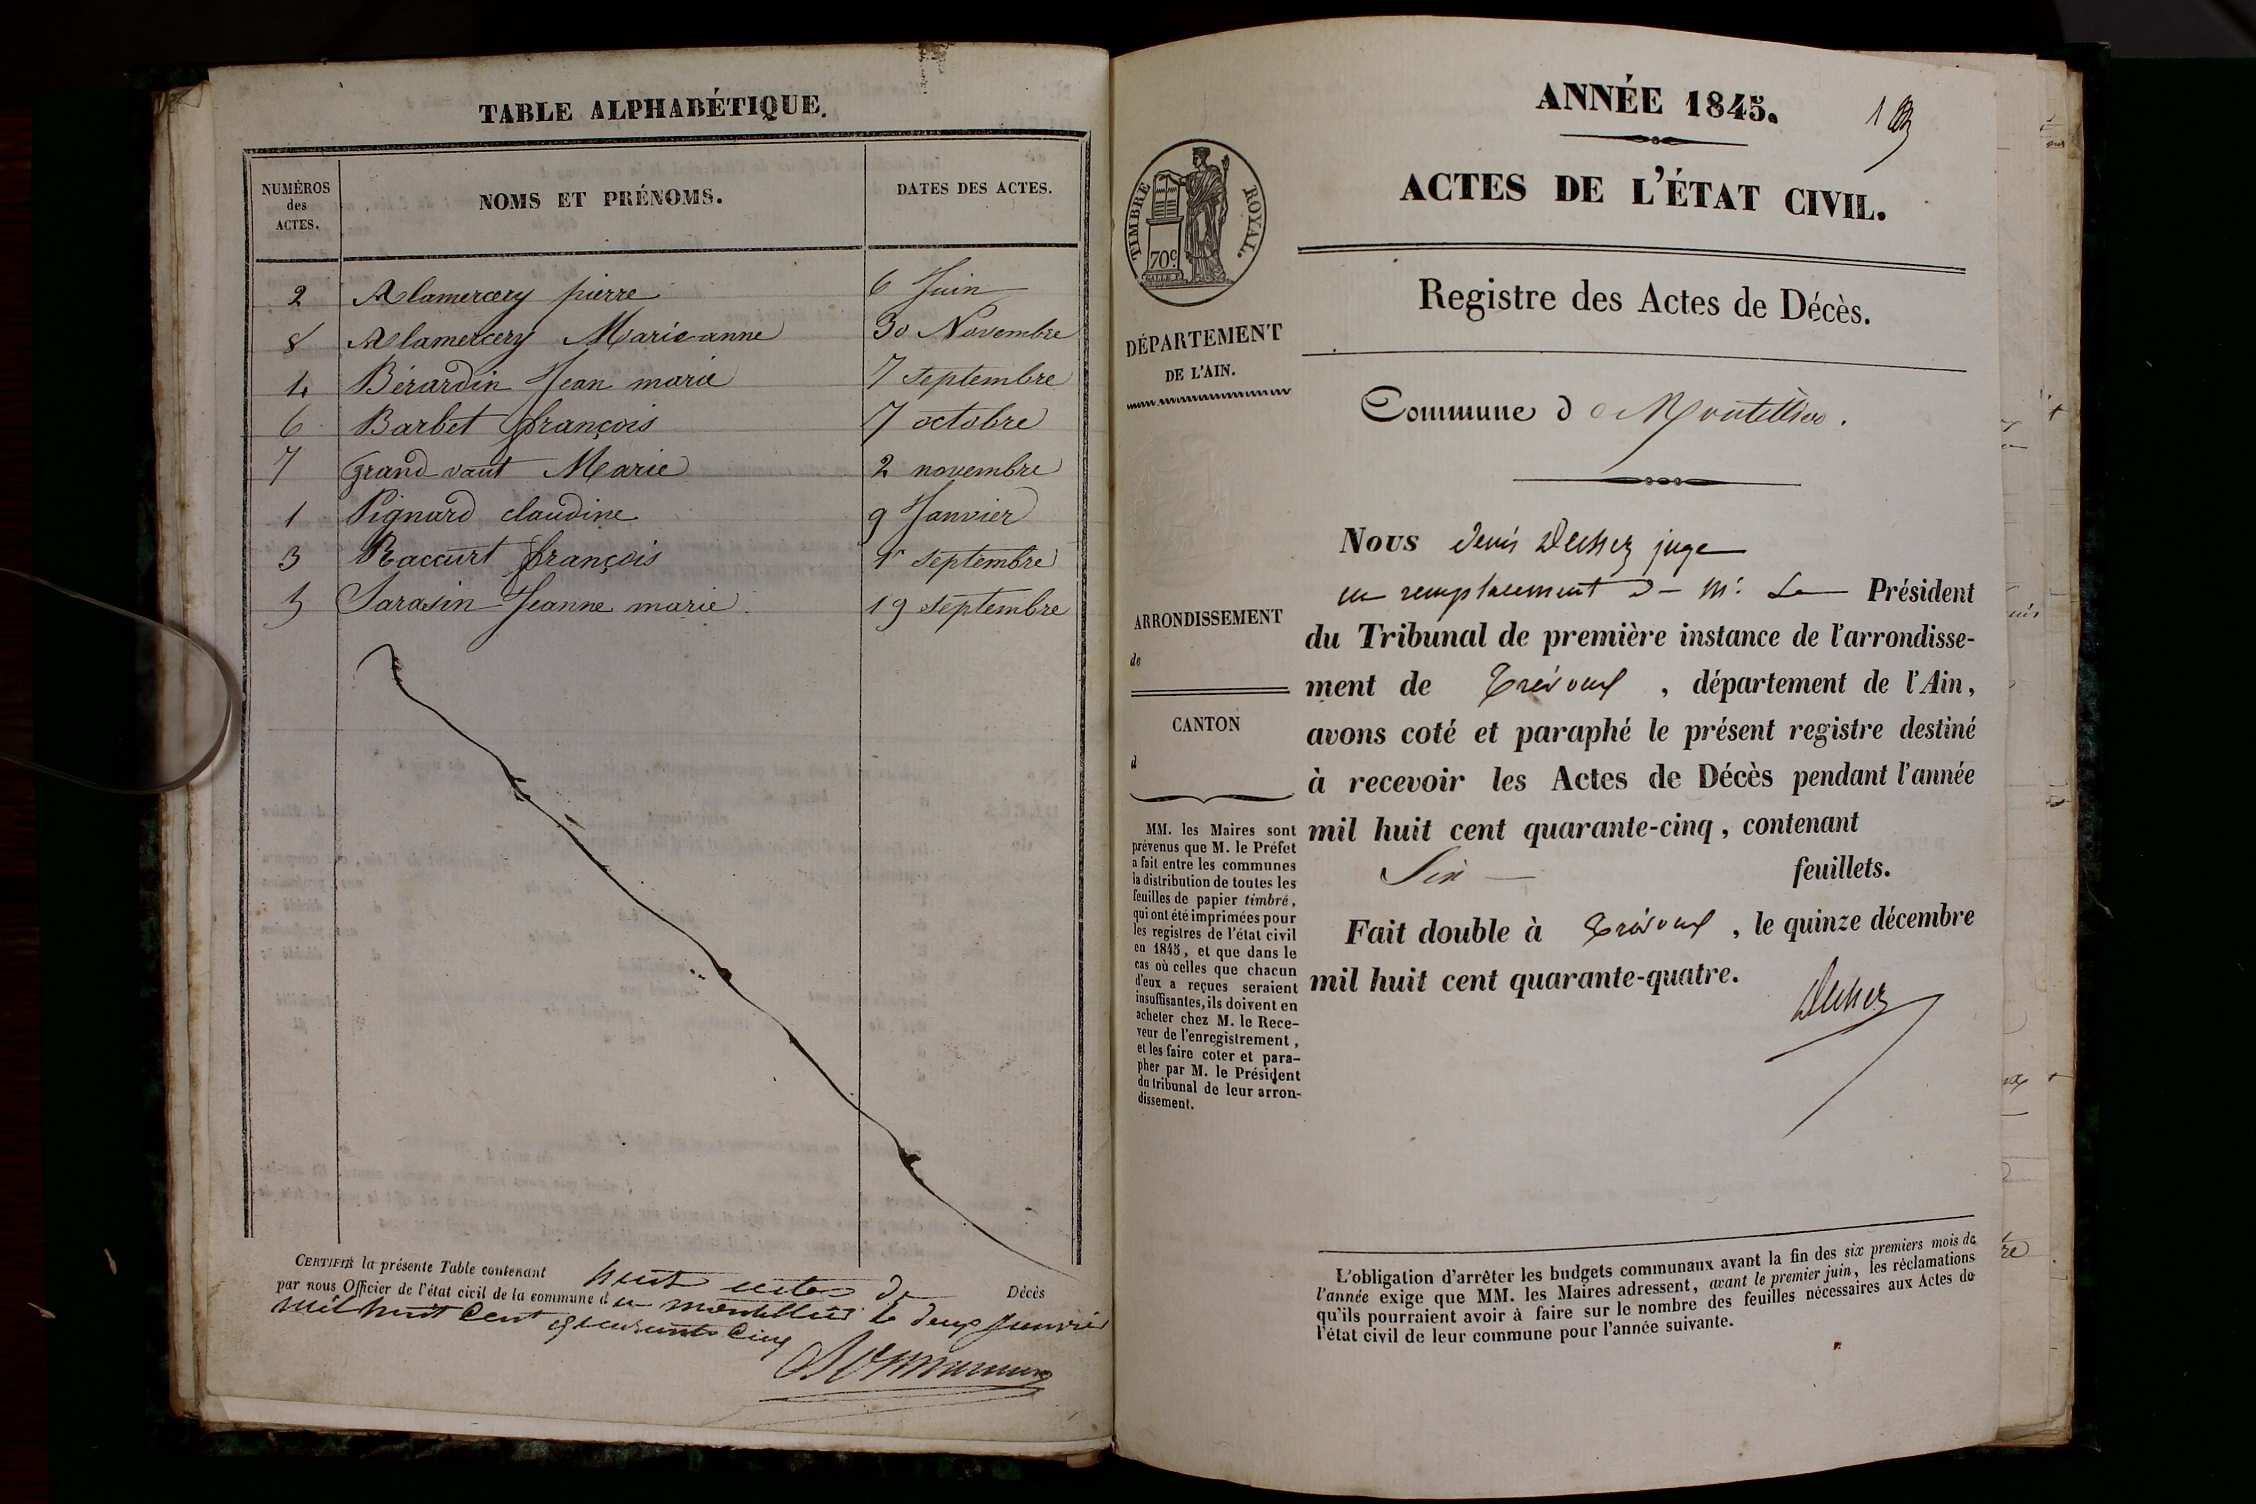 TABLE ALPHABÉTIQUE.
NUMÉROS des ACTES. NOMS ET PRÉNOMS. DATES DES ACTES.
2 Alamercery pierre 6 Juin
8 Alamercery Marie anne 30 Novembre
4 Bérardin Jean marie 7 septembre
6 Barbet françois 7 octobre
7 Grand vaut Marie 2 novembre
1 Pignard claudine 9 Janvier
3 Raccurt françois 1r septembre
5 Sarasin Jeanne marie 19 septembre
CERTIFIÉ la présente Table contenant huit actes de Décès
par nous Officier de l'état civil de la commune d le deux janvier
mil huit cent quarante cinq
ANNÉE 1845.
1
ACTES DE L'ÉTAT CIVIL.
TIMBRE ROYAL.
70c
Registre des Actes de Décès.
DÉPARTEMENT
DE L'AIN.
Commune d Montellier.
Nous Denis juge
en remplacement de Mr. Le Président
du Tribunal de première instance de l'arrondisse-
ment de Trévoux, département de l'Ain,
avons coté et paraphé le présent registre destiné
à recevoir les Actes de Décès pendant l'année
mil huit cent quarante-cinq, contenant
Six feuillets.
Fait double à Trévoux, le quinze décembre
mil huit cent quarante-quatre.
ARRONDISSEMENT
de
CANTON
d
MM. les Maires sont
prévenus que M. le Préfet
a fait entre les communes
la distribution de toutes les
feuilles de papier timbré,
qui ont été imprimées pour
les registres de l'état civil
en 1845, et que dans le
cas où celles que chacun
d'eux a reçues seraient
insuffisantes, ils doivent en
acheter chez M. le Rece-
veur de l'enregistrement,
et les faire coter et para-
pher par M. le Président
du tribunal de leur arron-
dissement.
L'obligation d'arrêter les budgets communaux avant la fin des six premiers mois de
l'année exige que MM. les Maires adressent, avant le premier juin, les réclamations
qu'ils pourraient avoir à faire sur le nombre des feuilles nécessaires aux Actes de
l'état civil de leur commune pour l'année suivante.